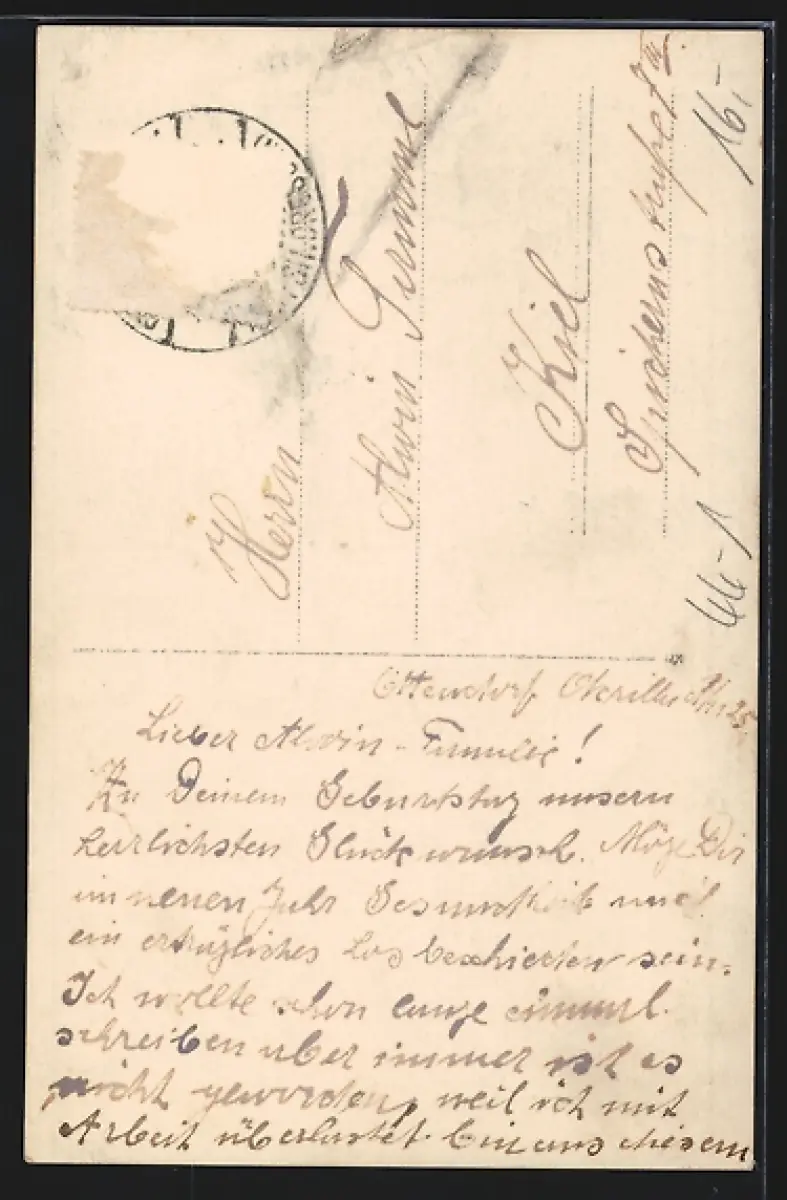 Herrn
Alwin
Kiel
16,-
Ottendorf Okrilla 25.
Lieber Alwin - Familie!
Zu Deinem Geburtstag unsern
herzlichsten Glückwunsch. Möge Dir
im neuen Jahr Gesundheit und
ein erträgliches Los beschieden sein.
Ich wollte schon lange einmal
schreiben aber immer ist es
nicht geworden, weil ich mit
Arbeit überlastet bin aus diesem